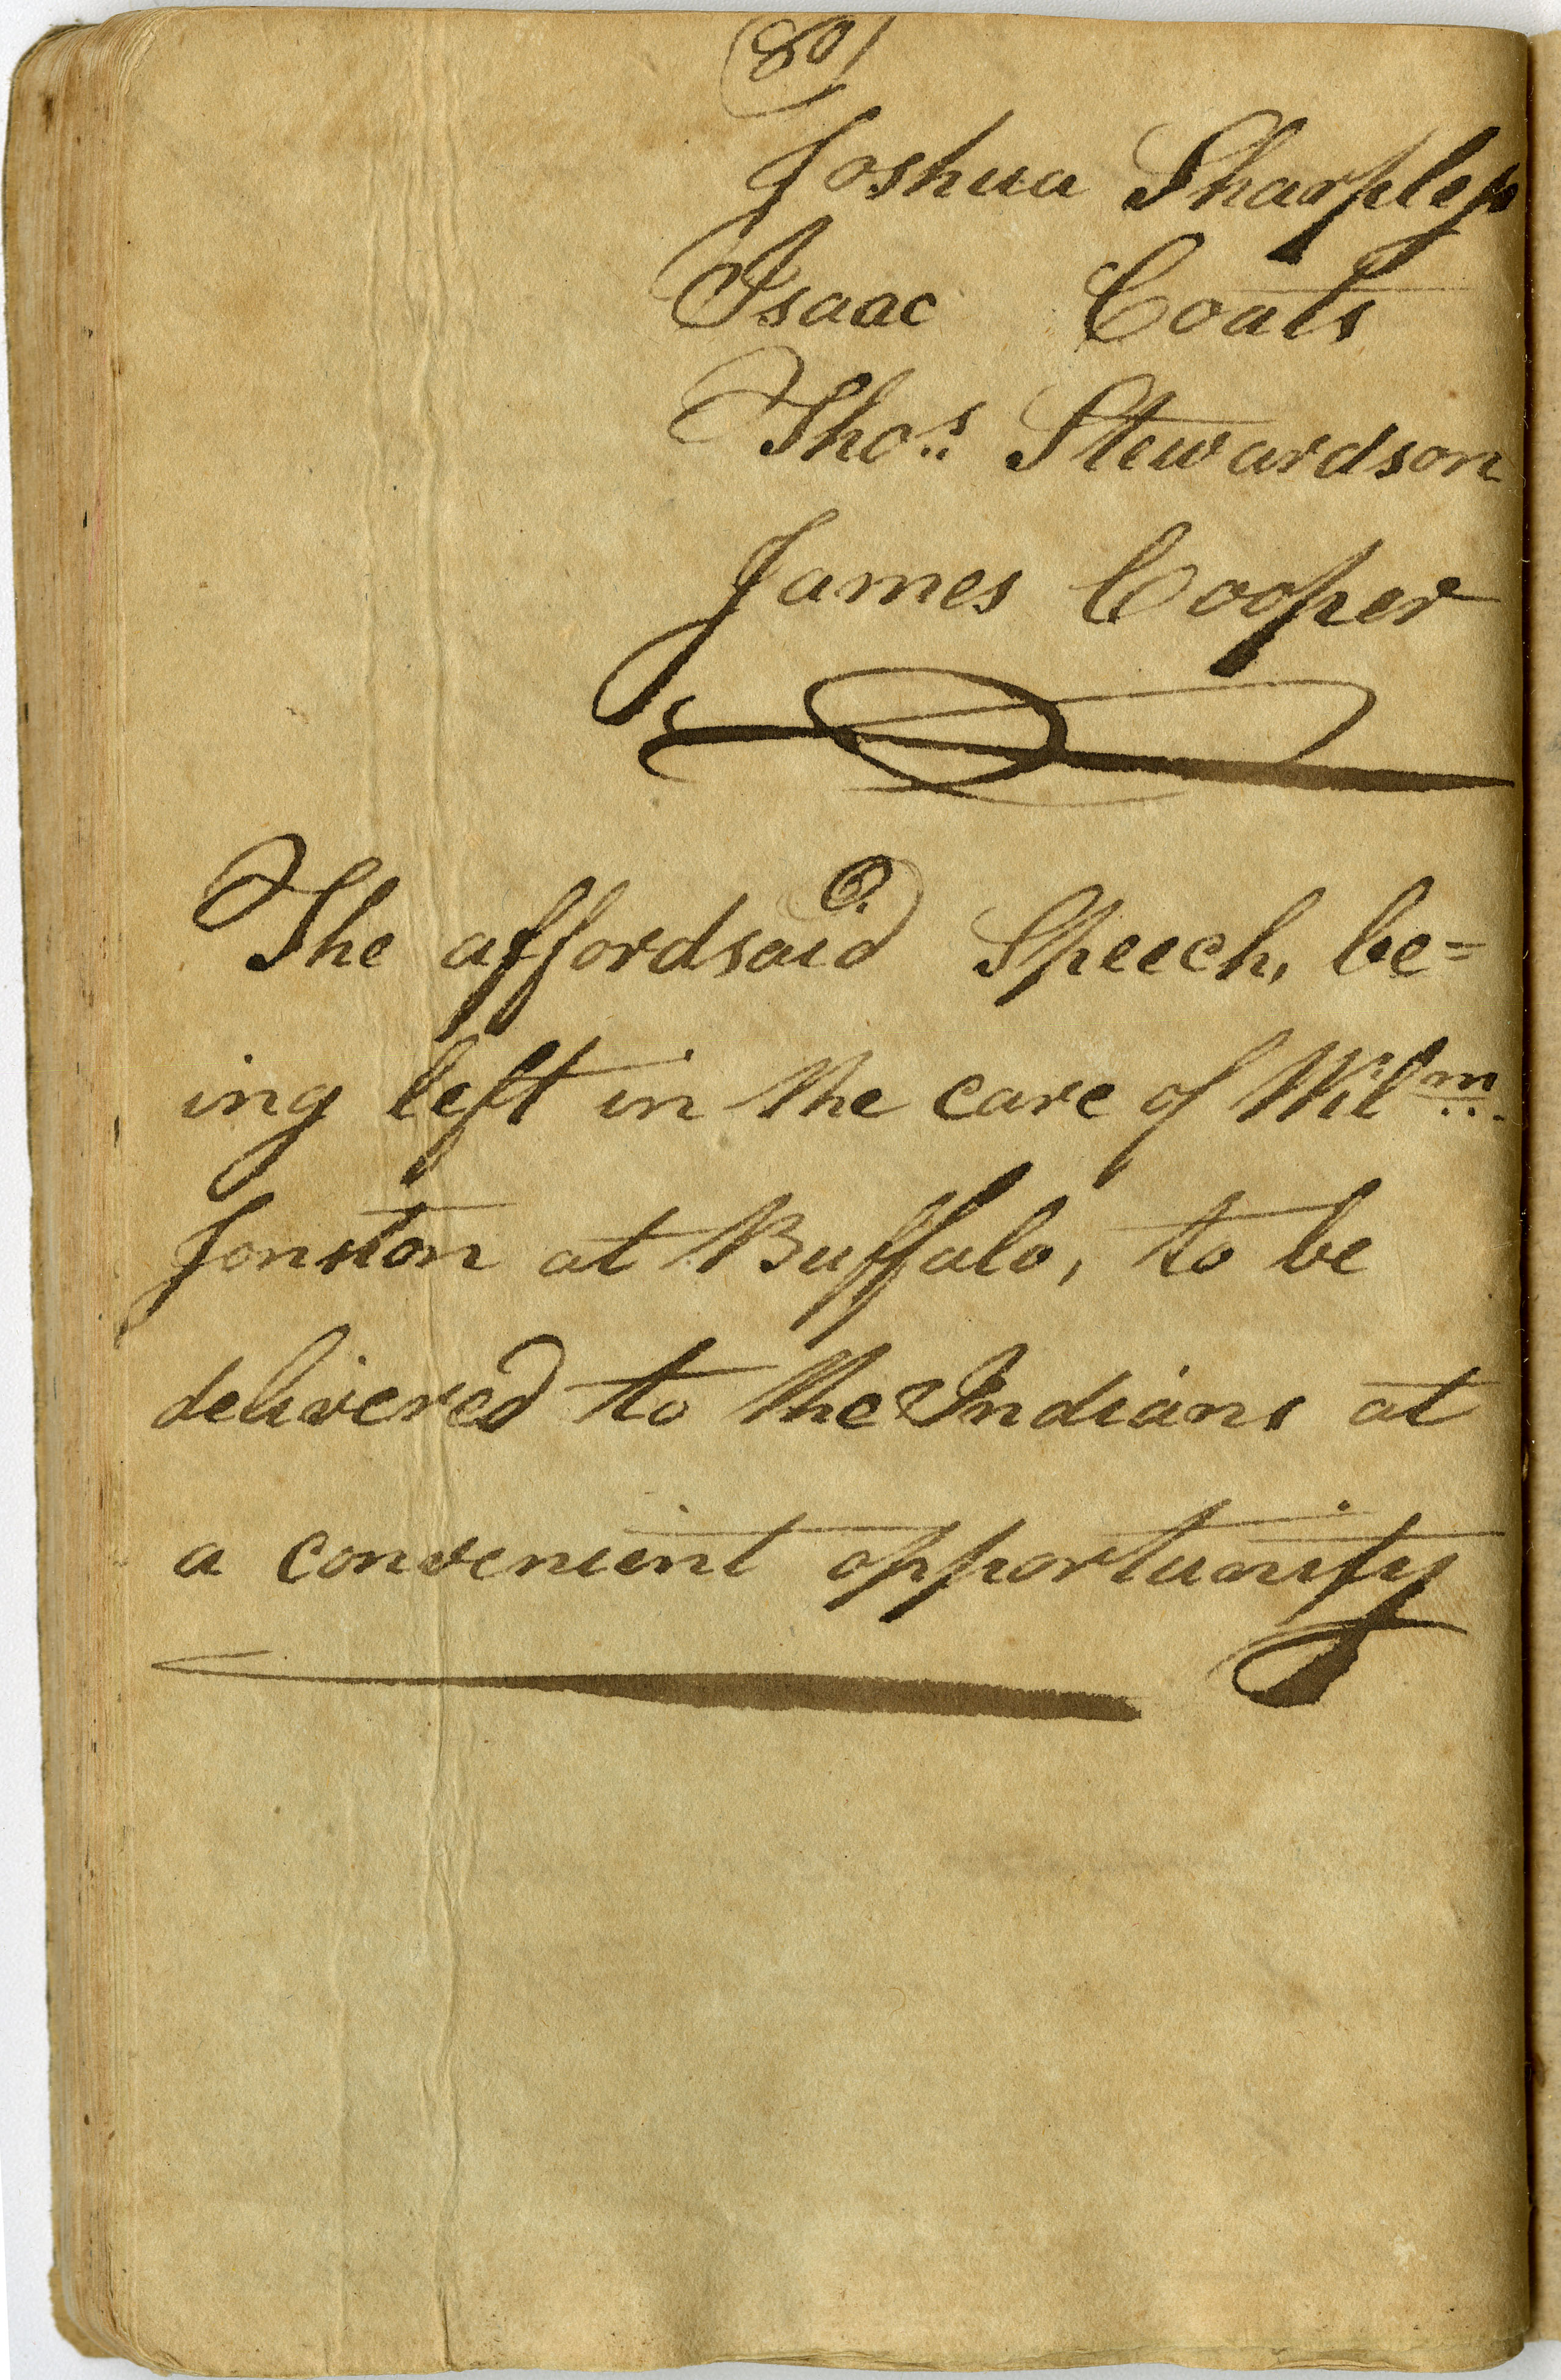 (80)
Joshua Sharpless
Isaac Coats
Thos. Stewardson
James Cooper
The affordsaid Speech, be=
ing left in the care of Wilm.
Jonston at Buffalo, to be
delivered to the Indians at
a convenient opportunity